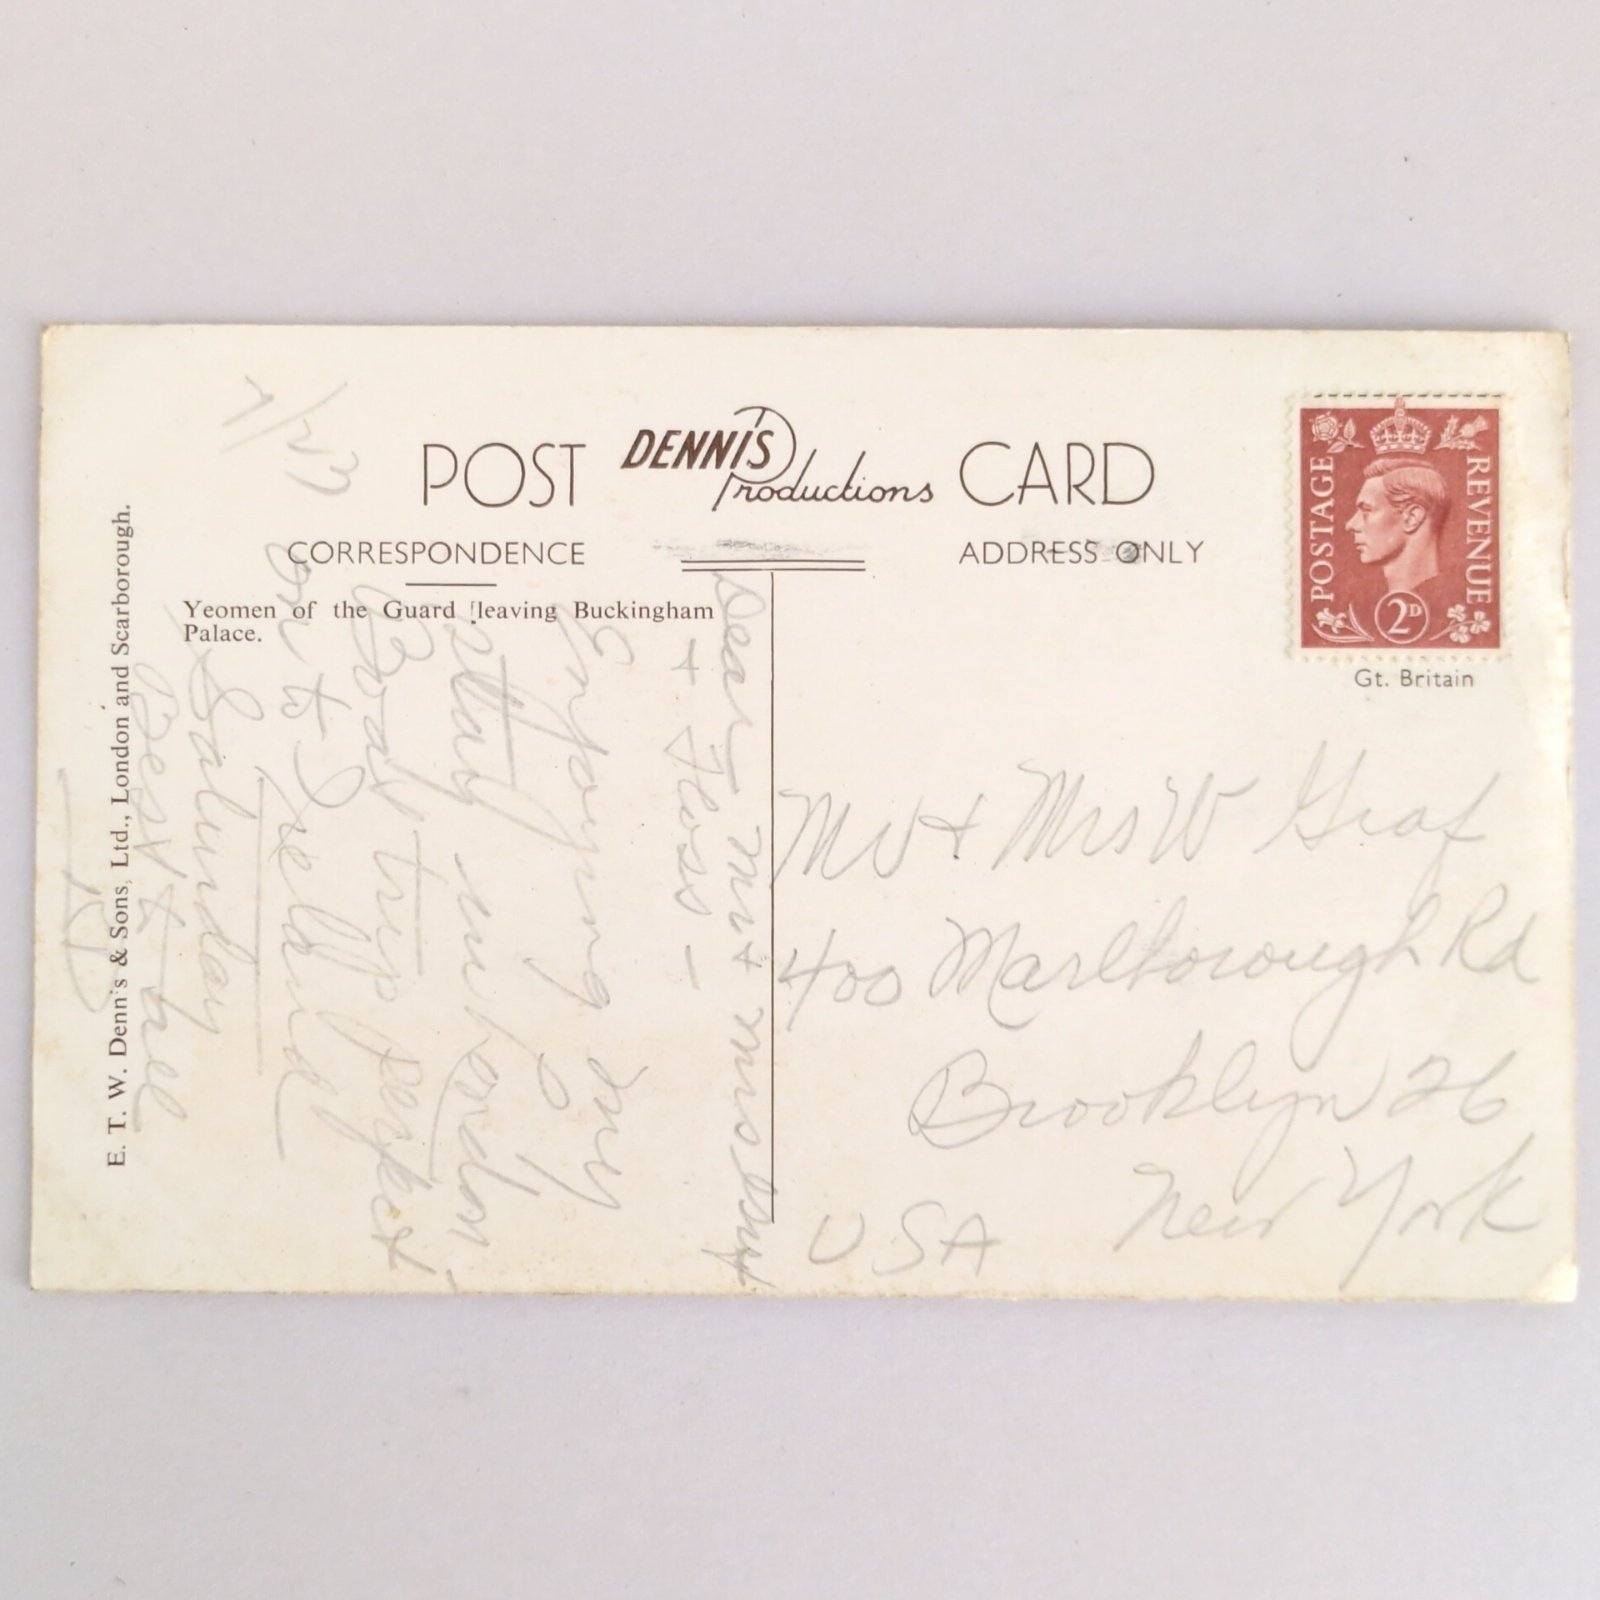 POST DENNIS Productions CARD
CORRESPONDENCE
ADDRESS ONLY
Yeomen of the Guard leaving Buckingham
Palace.
E. T. W. Dennis & Sons, Ltd., London and Scarborough.
POSTAGE REVENUE
2D
Gt. Britain
Dear Mr + Mrs
+ Floss -
Enjoying my
stay in London -
Boat trip perfect
on to Ireland
Saturday
Best to all
Mr + Mrs W Graf
400 Marlborough Rd
Brooklyn 26
New York
USA